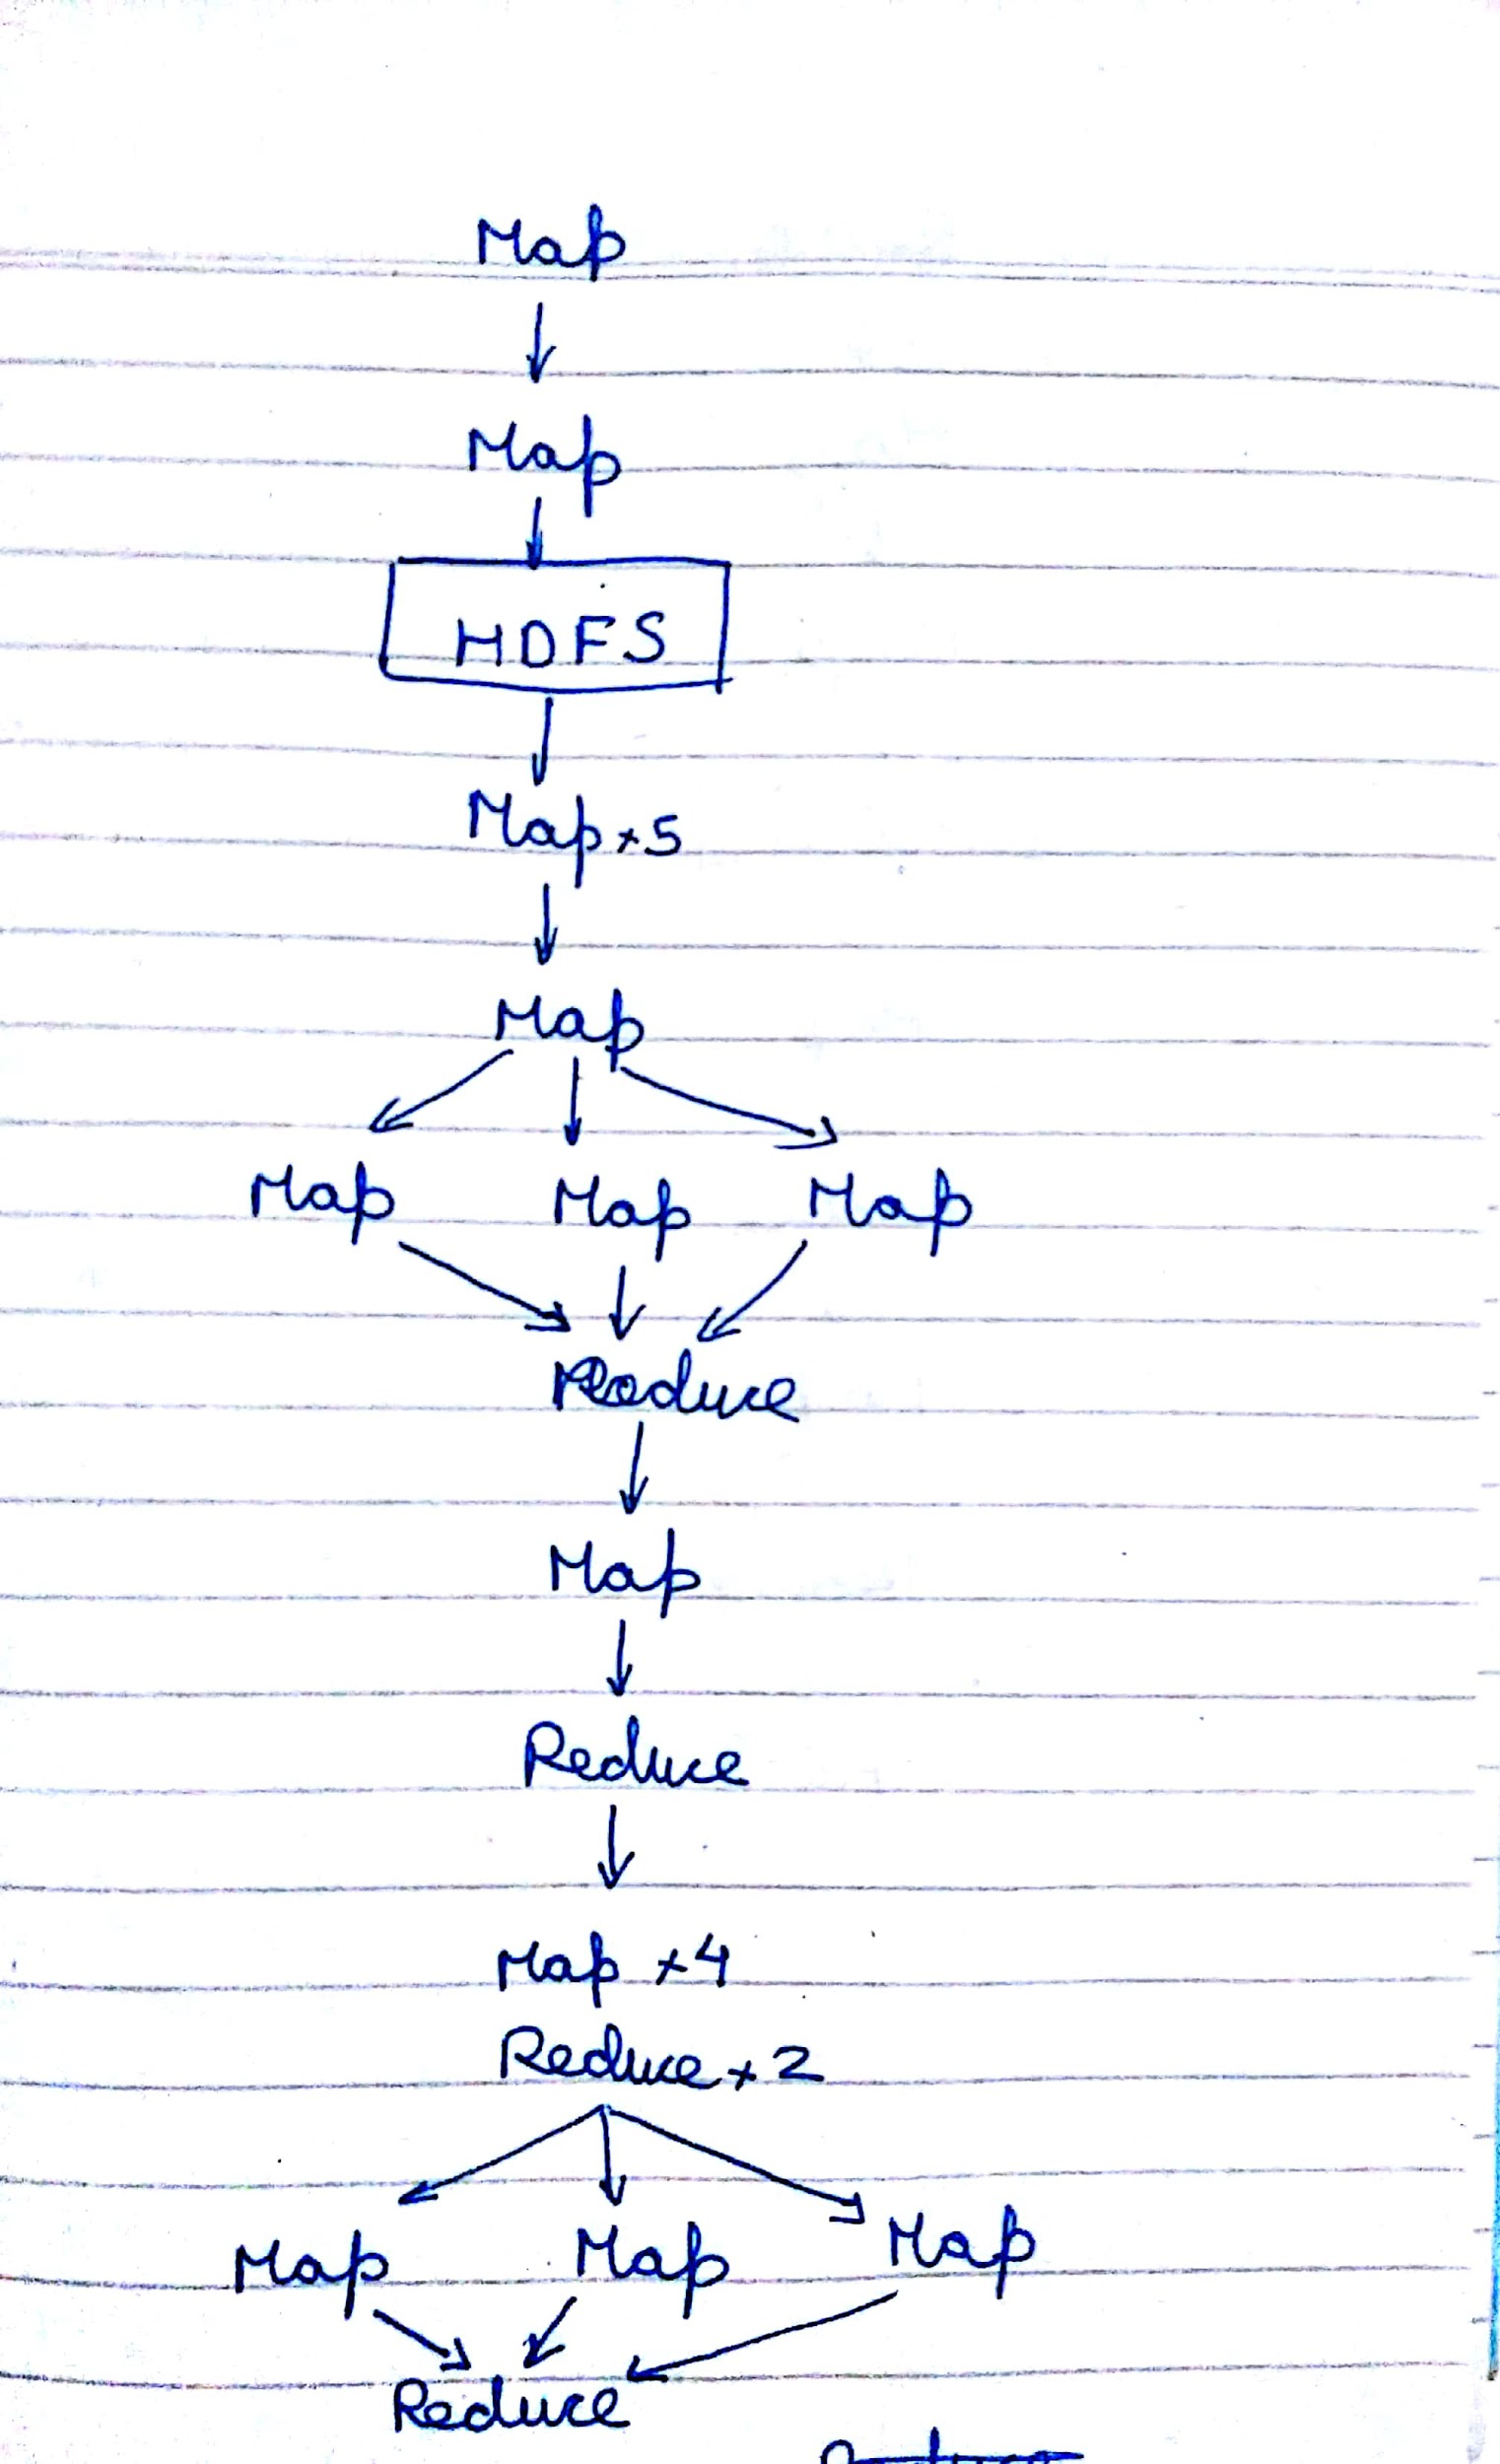 Map
Map
HDFS
Map x 5
Map
Map Map Map
Reduce
Map
Reduce
Map x 4
Reduce x 2
Map Map Map
Reduce